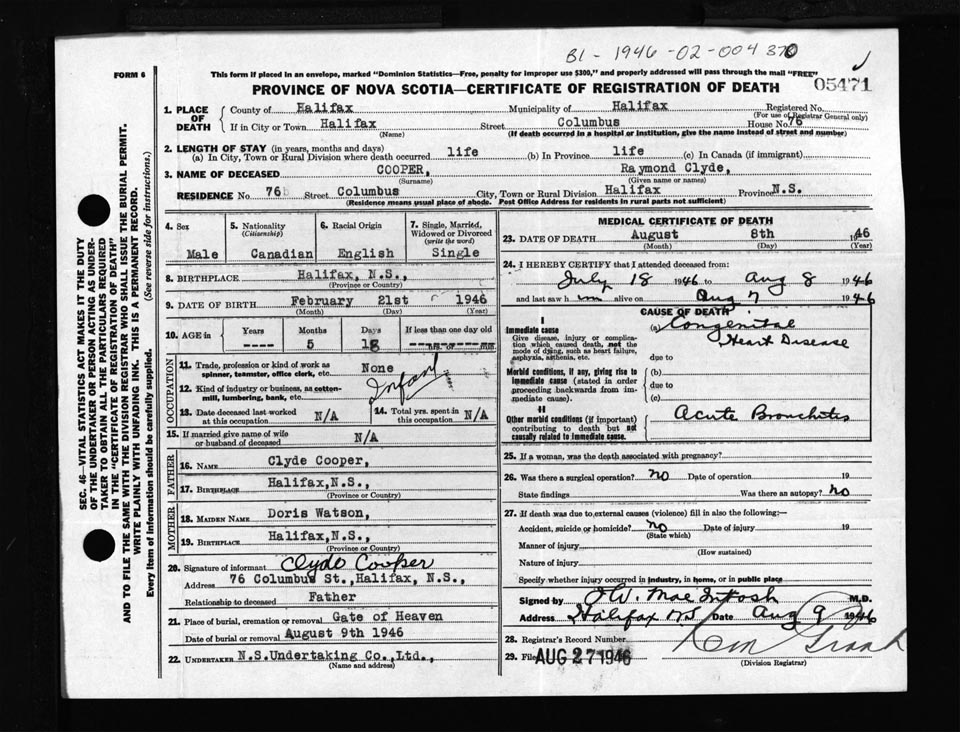 B1-1946-02-004370
FORM 6
This form if placed in an envelope, marked "Dominion Statistics—Free, penalty for improper use $300," and properly addressed will pass through the mail "FREE"
05471
PROVINCE OF NOVA SCOTIA—CERTIFICATE OF REGISTRATION OF DEATH
1. PLACE OF DEATH
County of Halifax Municipality of Halifax Registered No.
(For use of Registrar General only)
If in City or Town Halifax Street Columbus House No. 76
(Name) (If death occurred in a hospital or institution, give the name instead of street and number)
2. LENGTH OF STAY (in years, months and days)
(a) In City, Town or Rural Division where death occurred life (b) In Province life (c) In Canada (if immigrant)
3. NAME OF DECEASED COOPER, Raymond Clyde,
(Surname) (Given name or names)
RESIDENCE No 76 Street Columbus City, Town or Rural Division Halifax Province N.S.
(Residence means usual place of abode. Post Office Address for residents in rural parts not sufficient)
4. Sex
Male
5. Nationality
(Citizenship)
Canadian
6. Racial Origin
English
7. Single, Married,
Widowed or Divorced
(write the word)
Single
8. BIRTHPLACE Halifax, N.S.,
(Province or Country)
9. DATE OF BIRTH February 21st 1946
(Month) (Day) (Year)
10. AGE in
Years Months Days If less than one day old
---- 5 18 hrs. or min.
OCCUPATION
11. Trade, profession or kind of work as
spinner, teamster, office clerk, etc. None
12. Kind of industry or business, as cotton-
mill, lumbering, bank, etc. Infant
13. Date deceased last worked
at this occupation N/A
14. Total yrs. spent in
this occupation N/A
15. If married give name of wife
or husband of deceased N/A
FATHER
16. NAME Clyde Cooper,
17. BIRTHPLACE Halifax,N.S.,
(Province or Country)
MOTHER
18. MAIDEN NAME Doris Watson,
19. BIRTHPLACE Halifax,N.S.,
(Province or Country)
20. Signature of informant Clyde Cooper
Address 76 Columbus St.,Halifax, N.S.,
Relationship to deceased Father
21. Place of burial, cremation or removal Gate of Heaven
Date of burial or removal August 9th 1946
22. UNDERTAKER N.S.Undertaking Co.,Ltd.,
(Name and address)
MEDICAL CERTIFICATE OF DEATH
23. DATE OF DEATH August 8th 1946
(Month) (Day) (Year)
24. I HEREBY CERTIFY that I attended deceased from:
July 18 1946 to Aug 8 1946
and last saw him alive on Aug 7 1946
CAUSE OF DEATH
I
Immediate cause
Give disease, injury or complica-
tion which caused death, not the
mode of dying, such as heart failure,
asphyxia, asthenia, etc.
(a) Congenital
Heart Disease
due to
Morbid conditions, if any, giving rise to
immediate cause (stated in order
proceeding backwards from im-
mediate cause).
(b)
due to
(c)
II
Other morbid conditions (if important)
contributing to death but not
causally related to immediate cause.
Acute Bronchitis
25. If a woman, was the death associated with pregnancy?
26. Was there a surgical operation? No Date of operation 19
State findings Was there an autopsy? No
27. If death was due to external causes (violence) fill in also the following:—
Accident, suicide or homicide? No Date of injury 19
(State which)
Manner of injury
(How sustained)
Nature of injury
Specify whether injury occurred in industry, in home, or in public place
Signed by W. MacIntosh M.D.
Address Halifax NS Date Aug 9 1946
28. Registrar's Record Number
29. Filed AUG 27 1946
(Division Registrar)
SEC. 46—VITAL STATISTICS ACT MAKES IT THE DUTY
OF THE UNDERTAKER OR PERSON ACTING AS UNDER-
TAKER TO OBTAIN ALL THE PARTICULARS REQUIRED
IN THE "CERTIFICATE OF REGISTRATION OF DEATH"
AND TO FILE THE SAME WITH THE DIVISION REGISTRAR WHO SHALL ISSUE THE BURIAL PERMIT.
WRITE PLAINLY WITH UNFADING INK. THIS IS A PERMANENT RECORD.
Every item of information should be carefully supplied. (See reverse side for instructions.)